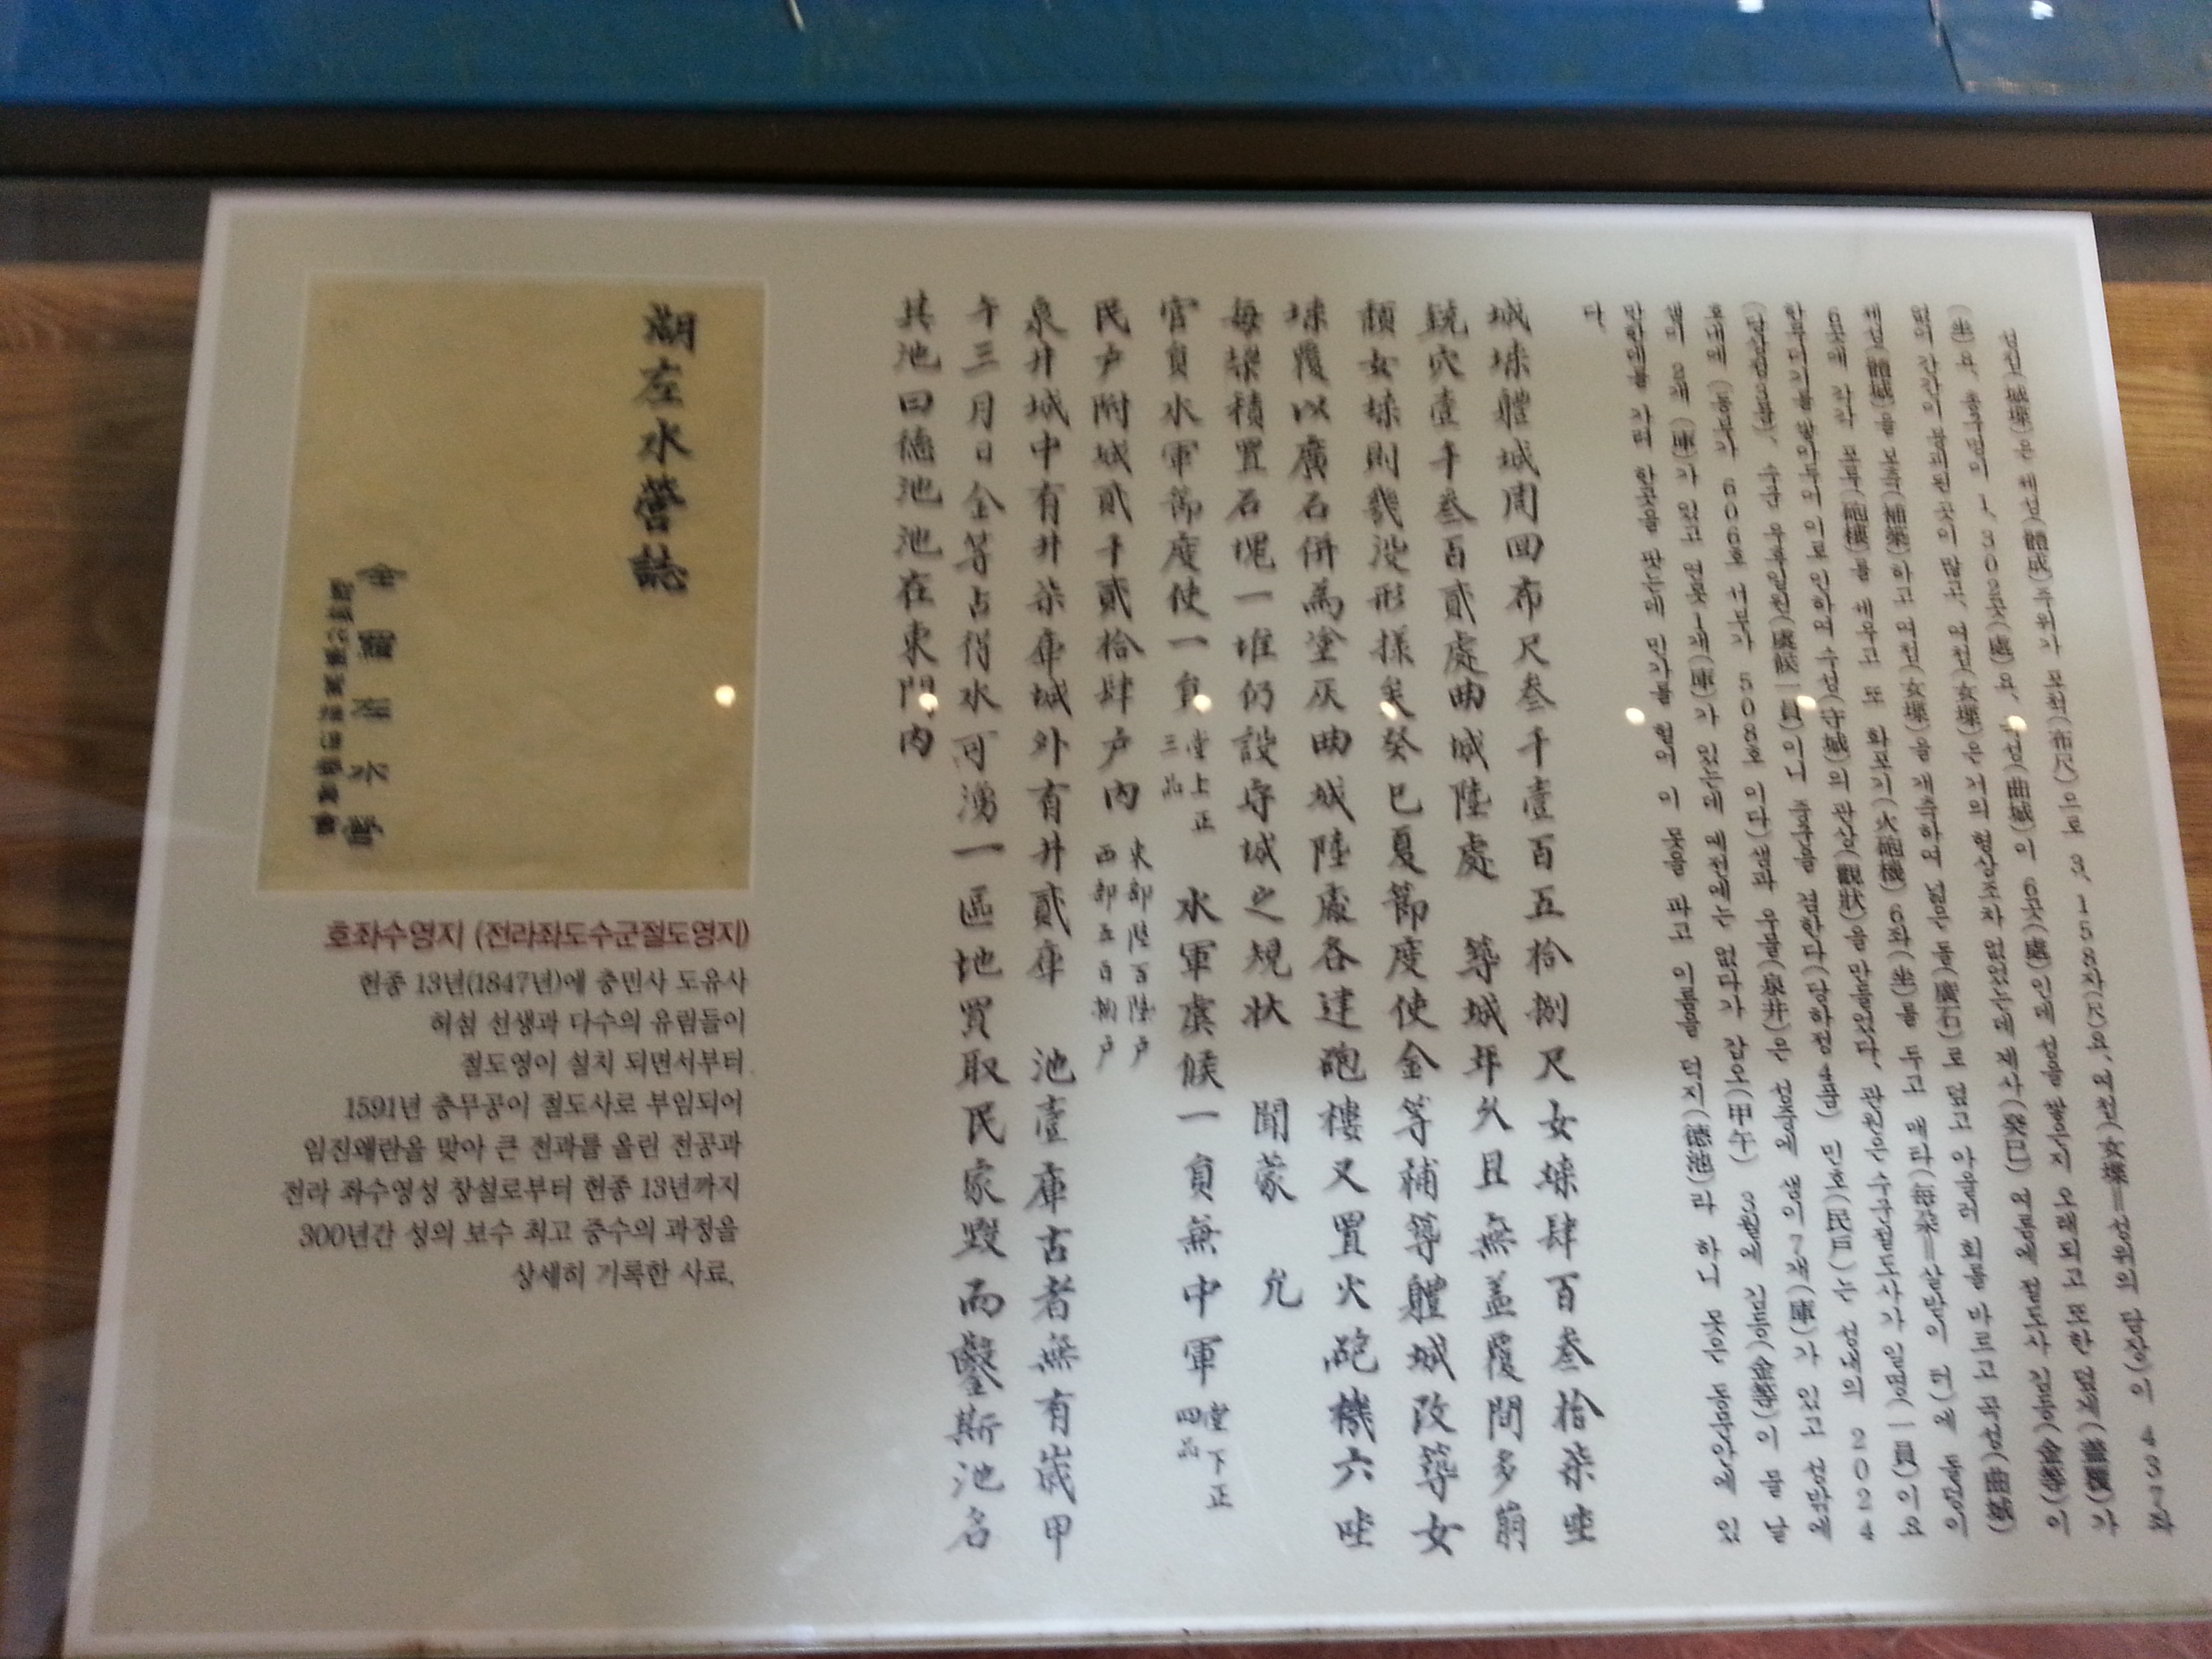 성첩(城堞)은 체성(體成)주위가 포척(布尺)으로 3,158자(尺)요, 여첩(女堞=성위의 담장)이 437좌
(坐)요, 총구멍이 1,302곳(處)요, 곡성(曲城)이 6곳(處)인데 성을 쌓은지 오래되고 또한 덮개(蓋覆)가
없어 간간이 붕괴된 곳이 많고, 여첩(女堞)은 거의 형상조차 없었는데 계사(癸巳) 여름에 절도사 김등(金等)이
체성(體城)을 보축(補築)하고 여첩(女堞)을 개축하여 넓은 돌(廣石)로 덮고 아울러 회를 바르고 곡성(曲城)
6곳에 각각 포루(砲樓)를 세우고 또 화포기(火砲機) 6좌(坐)를 두고 매타(每朶=살받이 터)에 돌덩이
한무더기를 쌓아두어 이로 인하여 수성(守城)의 관상(觀狀)을 만들었다. 관원은 수군절도사가 일명(一員)이요
(당상정3품), 수군 우후일원(虞候一員)이니 중군을 겸한다(당하정4품) 민호(民戶)는 성내의 2024
호내에 (동부가 606호 서부가 508호 이다)샘과 우물(泉井)은 성중에 샘이 7개(庫)가 있고 성밖에
샘이 2개 (庫)가 있고 연못 1개(庫)가 있는데 예전에는 없다가 갑오(甲午) 3월에 김등(金等)이 물 날
만한데를 가려 한곳을 팟는데 민가를 헐어 이 못을 파고 이름을 덕지(德池)라 하니 못은 동문안에 있
다.
城堞體城周回布尺叁千壹百五拾捌尺女堞肆百叁拾柒坐
銃穴壹千叁百貳處曲城陸處 築城年久且無盖覆間多崩
頹女堞則幾沒形樣矣癸巳夏節度使金等補築體城改築女
堞覆以廣石倂爲塗灰曲城陸處各建砲樓又置火砲機六坐
每垜積置石塊一堆仍設守城之規狀 聞蒙 允
官員水軍節度使一員 堂上正三品 水軍虞候一員無中軍 堂下正四品
民戶附城貳千貳拾肆戶內 東部陸百陸戶 西部五百捌戶
泉井城中有井柒庫城外有井貳庫 池壹庫古者無有歲甲
午三月日金等占得水可湧一區地買取民家毁而鑿斯池名
其池曰德池池在東門內
湖左水營誌
호좌수영지 (전라좌도수군절도영지)
헌종 13년(1847년)에 충민사 도유사
허섬 선생과 다수의 유림들이
절도영이 설치 되면서부터
1591년 충무공이 절도사로 부임되어
임진왜란을 맞아 큰 전과를 올린 전공과
전라 좌수영성 창설로부터 헌종 13년까지
300년간 성의 보수 최고 중수의 과정을
상세히 기록한 사료.